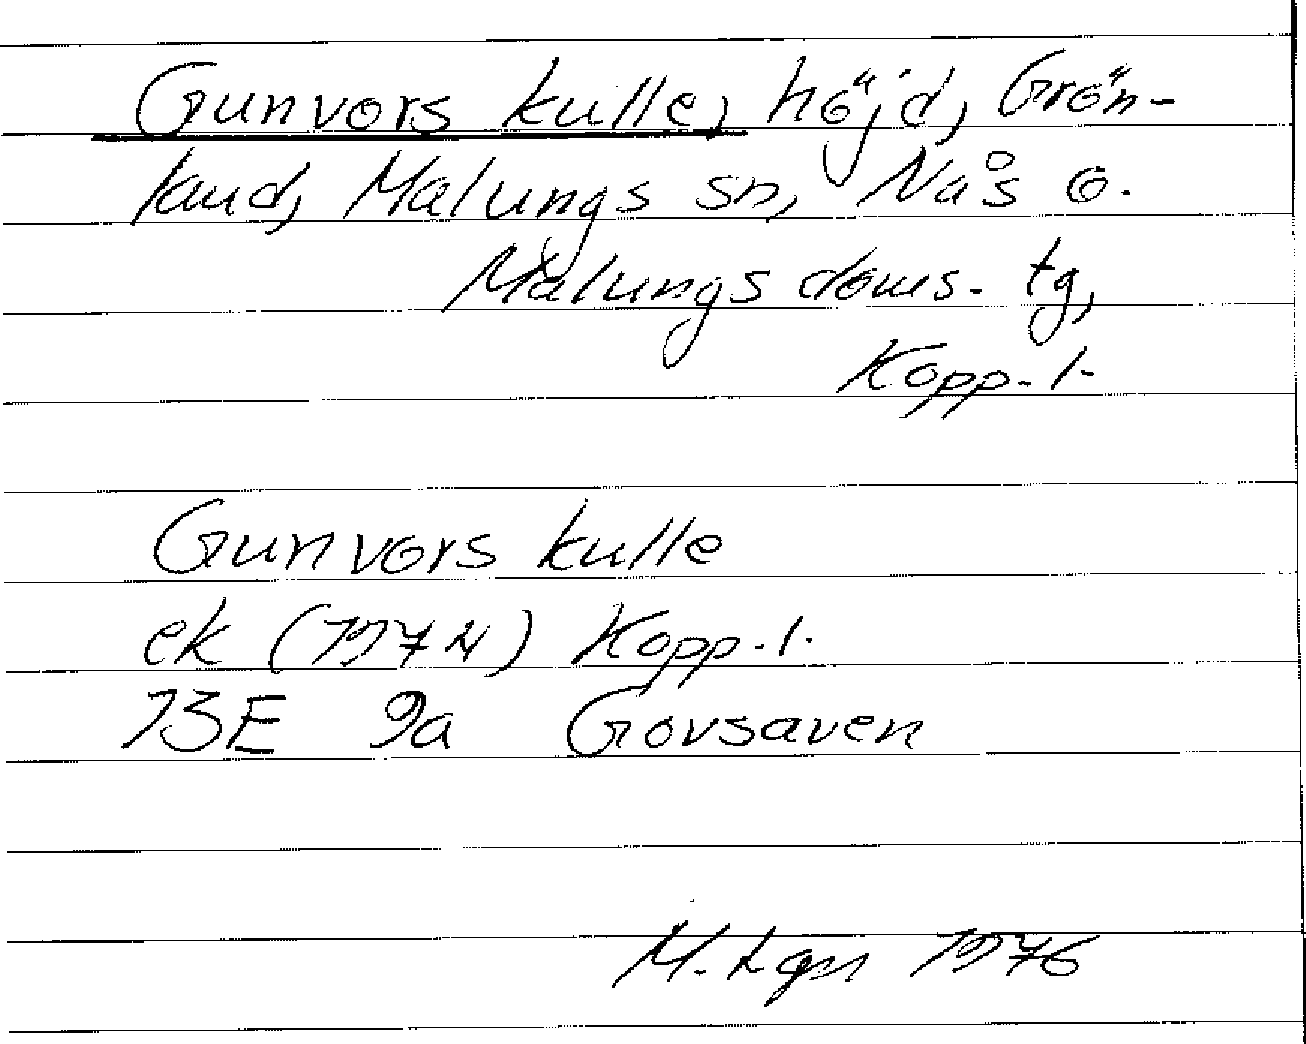 Gunvors kulle, höjd, Grön-
land, Malungs sn, Nås o.
Malungs doms. tg,
Kopp. l.
Gunvors kulle
ek (1974) Kopp. l.
13E 9a Govsaven
M. 1976